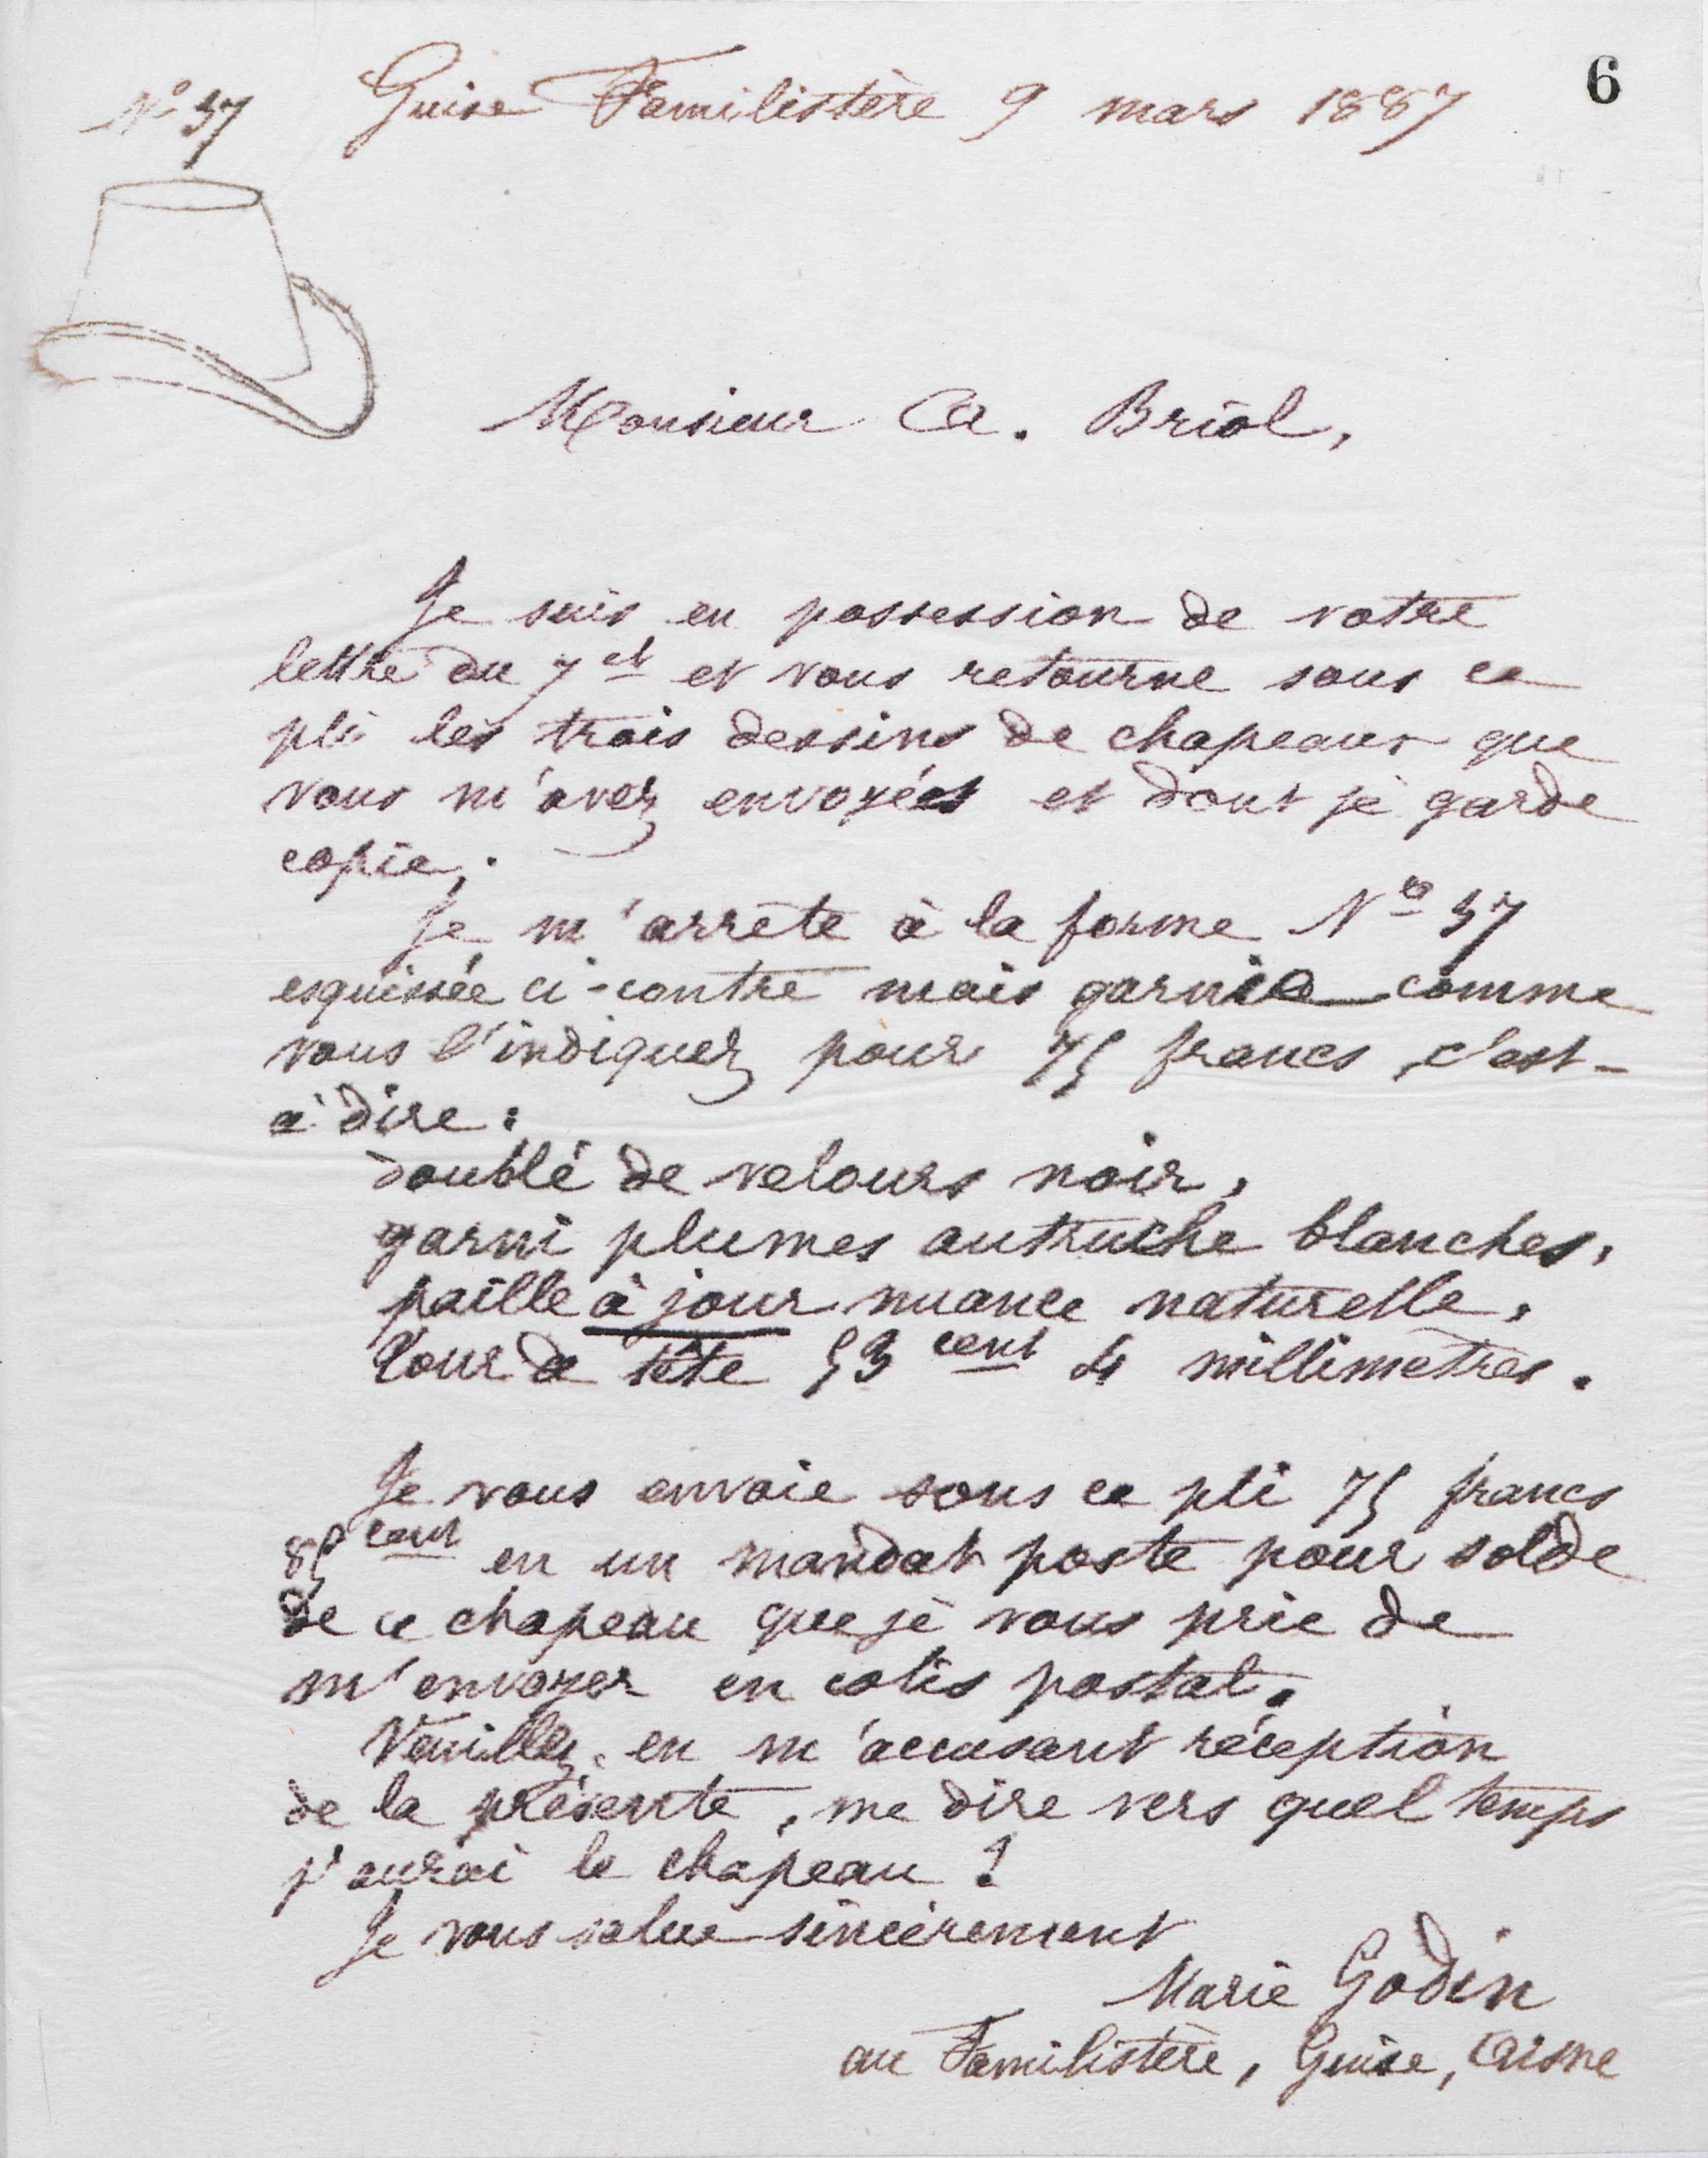 6
Nº 37 Guise Familistère 9 mars 1887
Monsieur A. Briol,
Je suis en possession de votre
lettre du 7 ct et vous retourne sous ce
pli les trois dessins de chapeaux que
vous m'avez envoyés et dont je garde
copie.
Je m'arrête à la forme Nº 37
esquissée ci-contre mais garnie comme
vous l'indiquez pour 75 francs, c'est-
à dire:
doublé de velours noir,
garni plumes autruche blanches,
paille à jour nuance naturelle,
tour de tête 53 cent 4 millimetres.
Je vous envoie sous ce pli 75 francs
85 cent en un mandat poste pour solde
de ce chapeau que je vous prie de
m'envoyer en colis postal.
Veuillez, en m'accusant réception
de la présente, me dire vers quel temps
j'aurai le chapeau?
Je vous salue sincèrement
Marie Godin
au Familistère, Guise, Aisne